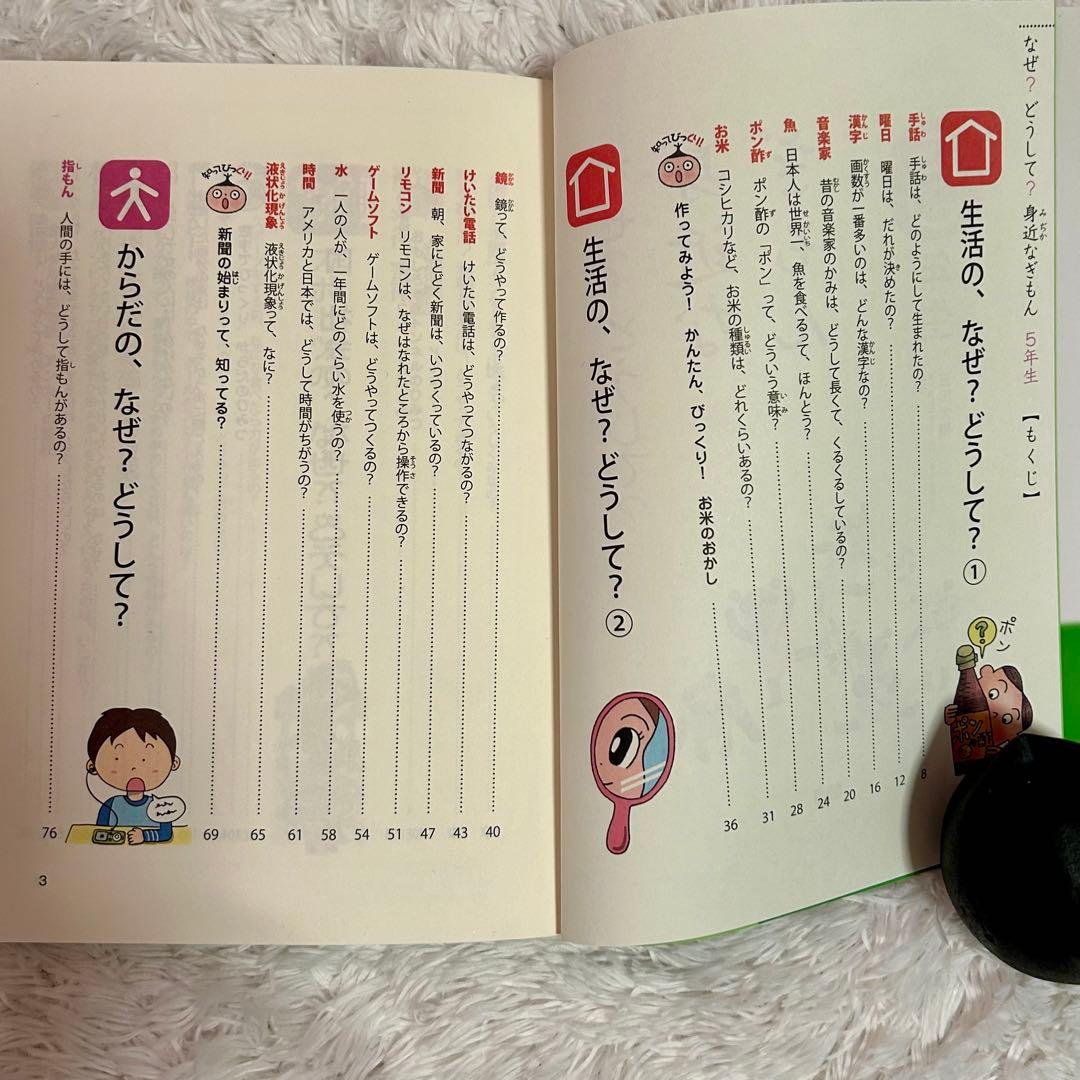 なぜ？どうして？身近なぎもん 5年生
【もくじ】
生活の、なぜ？どうして？①
手話 手話は、どのようにして生まれたの？ 8
曜日 曜日は、だれが決めたの？ 12
漢字 画数が一番多いのは、どんな漢字なの？ 16
音楽家 昔の音楽家のかみは、どうして長くて、くるくるしているの？ 20
魚 日本人は世界一、魚を食べるって、ほんとう？ 24
ポン酢 ポン酢の「ポン」って、どういう意味？ 28
お米 コシヒカリなど、お米の種類は、どれくらいあるの？ 31
知ってびっくり！ 作ってみよう！ かんたん、びっくり！ お米のおかし 36
ポン
？
ポン酢
生活の、なぜ？どうして？②
鏡 鏡って、どうやって作るの？ 40
けいたい電話 けいたい電話は、どうやってつながるの？ 43
新聞 朝、家にとどく新聞は、いつつくっているの？ 47
リモコン リモコンは、なぜはなれたところから操作できるの？ 51
ゲームソフト ゲームソフトは、どうやってつくるの？ 54
水 一人の人が、一年間にどのくらい水を使うの？ 58
時間 アメリカと日本では、どうして時間がちがうの？ 61
液状化現象 液状化現象って、なに？ 65
知ってびっくり！ 新聞の始まりって、知ってる？ 69
からだの、なぜ？どうして？
指もん 人間の手には、どうして指もんがあるの？ 76
3